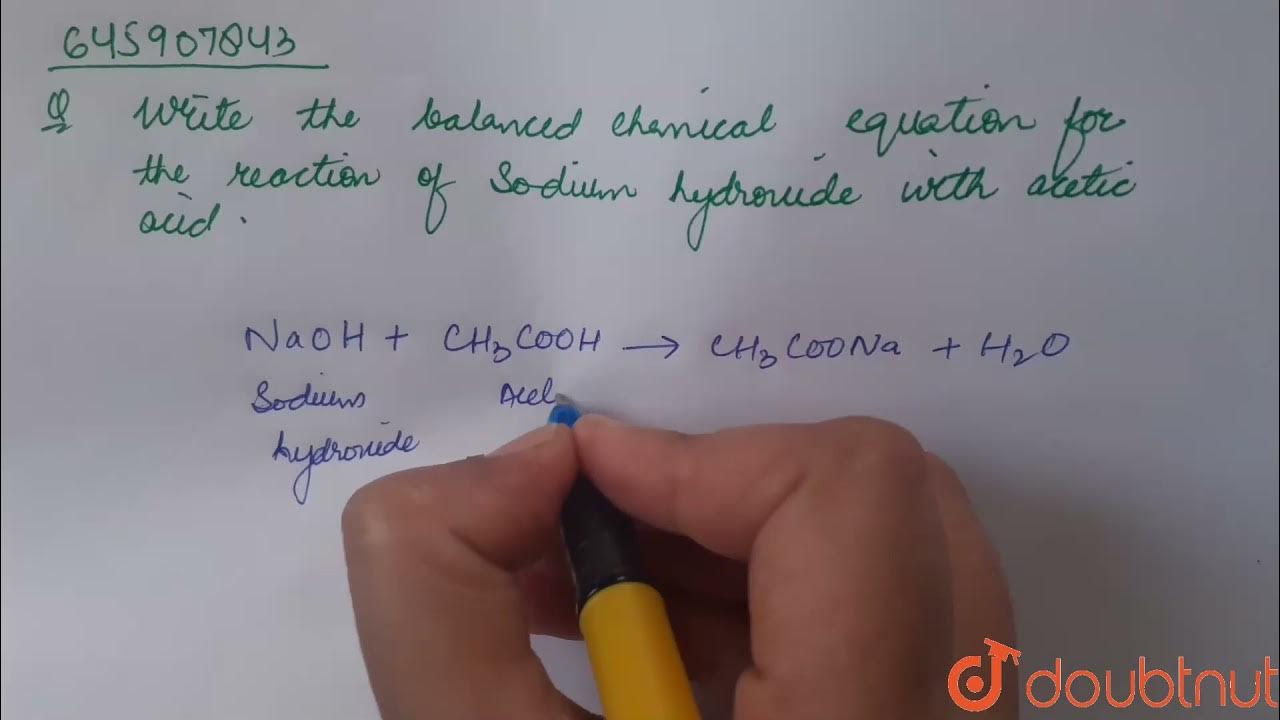 645907843
Q Write the balanced chemical equation for
the reaction of Sodium hydroxide with acetic
acid.
NaOH + CH3COOH → CH3COONa + H2O
Sodium Acet
hydroxide
doubtnut